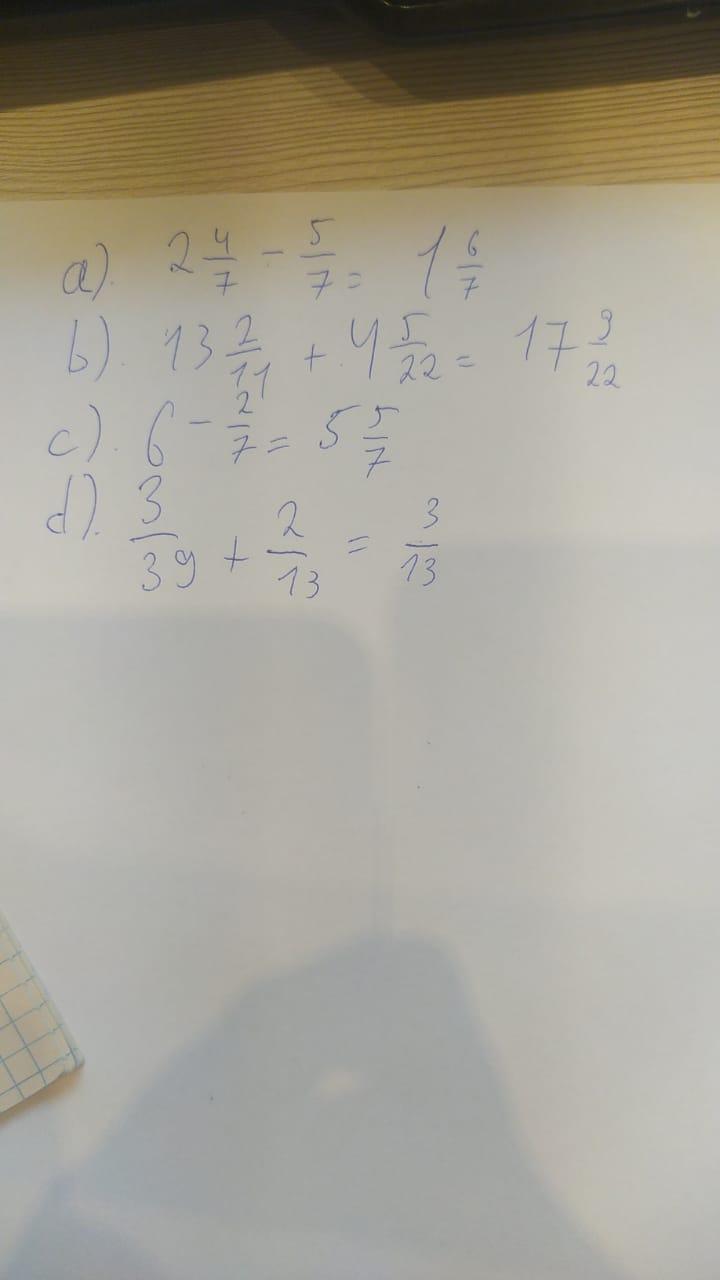 a). 2 4/7 - 5/7 = 1 6/7
b). 13 2/11 + 4 5/22 = 17 9/22
c). 6 - 2/7 = 5 5/7
d). 3/39 + 2/13 = 3/13